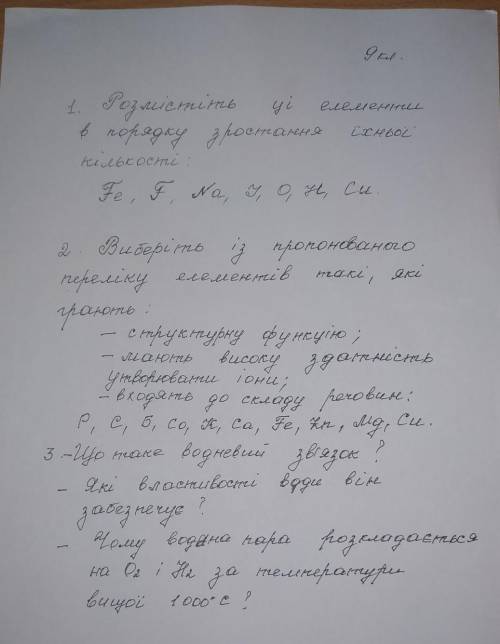 9 кл.
1. Розмістіть ці елементи
в порядку зростання їхньої
кількості:
Fe, F, Na, I, O, H, Cu.
2. Виберіть із пропонованого
переліку елементів такі, які
грають:
- структурну функцію;
- мають високу здатність
утворювати іони;
- входять до складу речовин:
P, C, S, Co, K, Ca, Fe, Zn, Mg, Cu.
3. - Що таке водневий зв'язок?
- Які властивості води він
забезпечує?
- Чому водяна пара розкладається
на O2 і H2 за температури
вищої 1000°C?